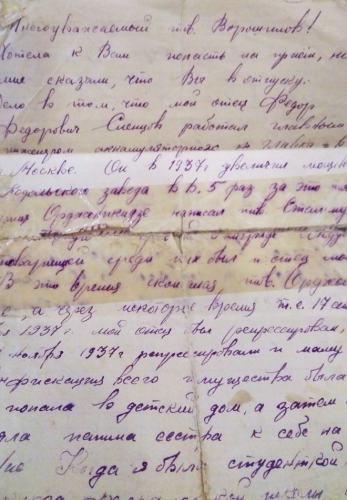 Многоуважаемый тов. Ворошилов!
Хотела к Вам попасть на прием, но
мне сказали, что Вы в отпуску.
Дело в том, что мой отец Федор
Федорович Слепцов работал главным
инженером аккумуляторного главка в
Москве. Он в 1937г увеличил мощн
Подольского завода в 8,5 раз за это
Орджоникидзе написал тов. Сталину
товарищей среди них был и отец
В это время скончался, тов. Орджон
е, а через некоторое время т.е. 17 сен
1937г. мой отец был репрессирован,
ноября 1937г репрессировали и маму
нфискация всего имущества была
попала в детский дом, а затем
яла папина сестра к себе на
Когда я была студенткой